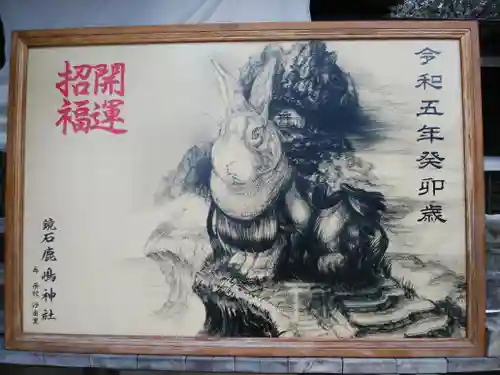 令和五年癸卯歳
開運
招福
鏡石鹿嶋神社